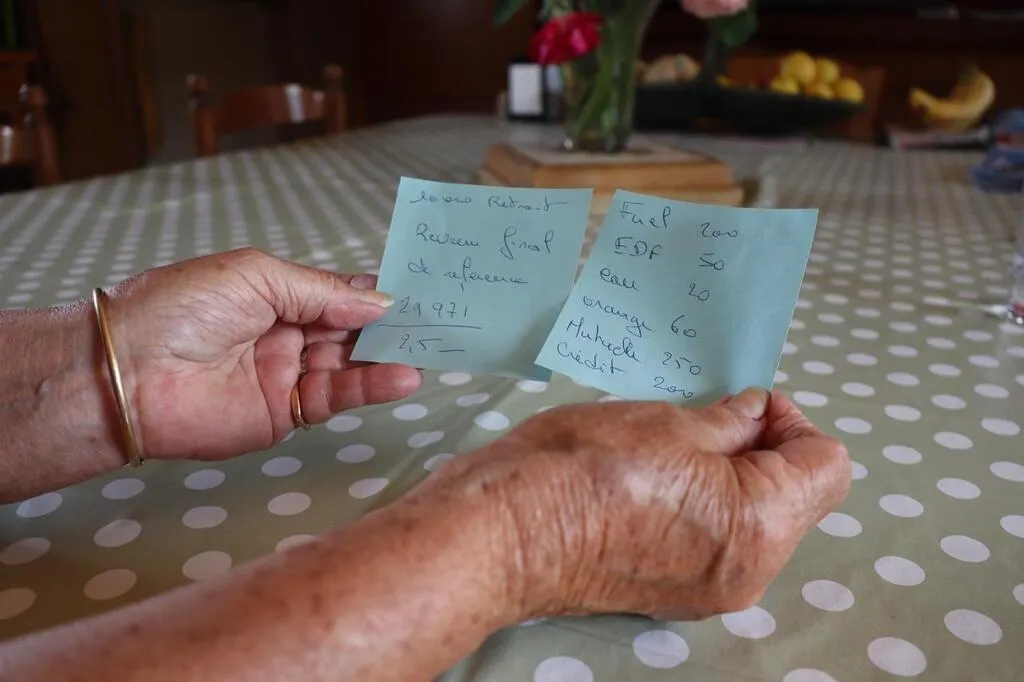 Retrait
Revenu final
de reference
29 971
2,5
Fuel 200
EDF 50
eau 20
orange 60
Mutuelle 250
Crédit 200